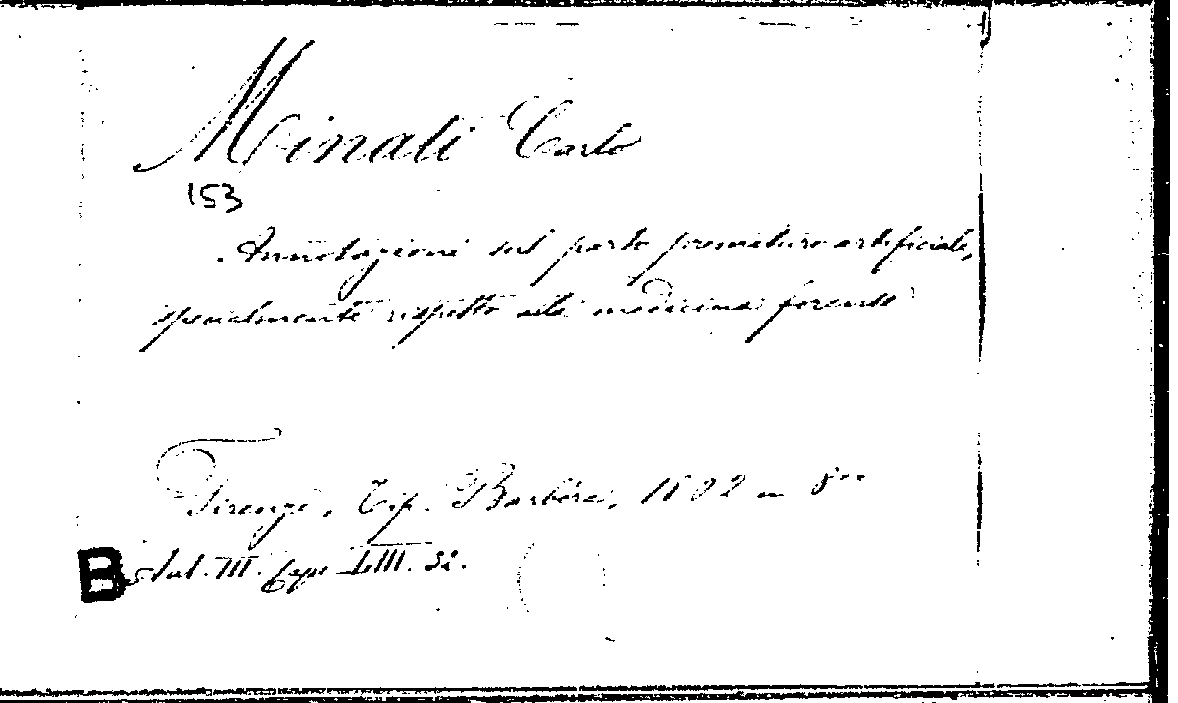 Minati Carlo
153
Annotazioni sul parto prematuro artificiale,
specialmente rispetto alla medicina forense
Firenze, Tip. Barbèra, 1892 in 8vo
B Sal. III.